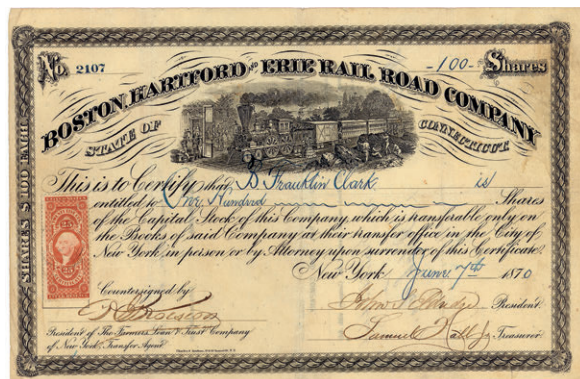 No. 2107 -100- Shares
BOSTON, HARTFORD AND ERIE RAIL ROAD COMPANY
STATE OF CONNECTICUT.
This is to Certify that D. Franklin Clark is
entitled to One Hundred Shares
of the Capital Stock of this Company, which is transferable only on
the Books of said Company at their transfer office in the City of
New York, in person or by Attorney upon surrender of this Certificate.
New York June 7th 1870
Countersigned by
John S. Eldridge President.
President of The Farmers Loan & Trust Company
of New York, Transfer Agent
Samuel Treasurer
SHARES $100 EACH